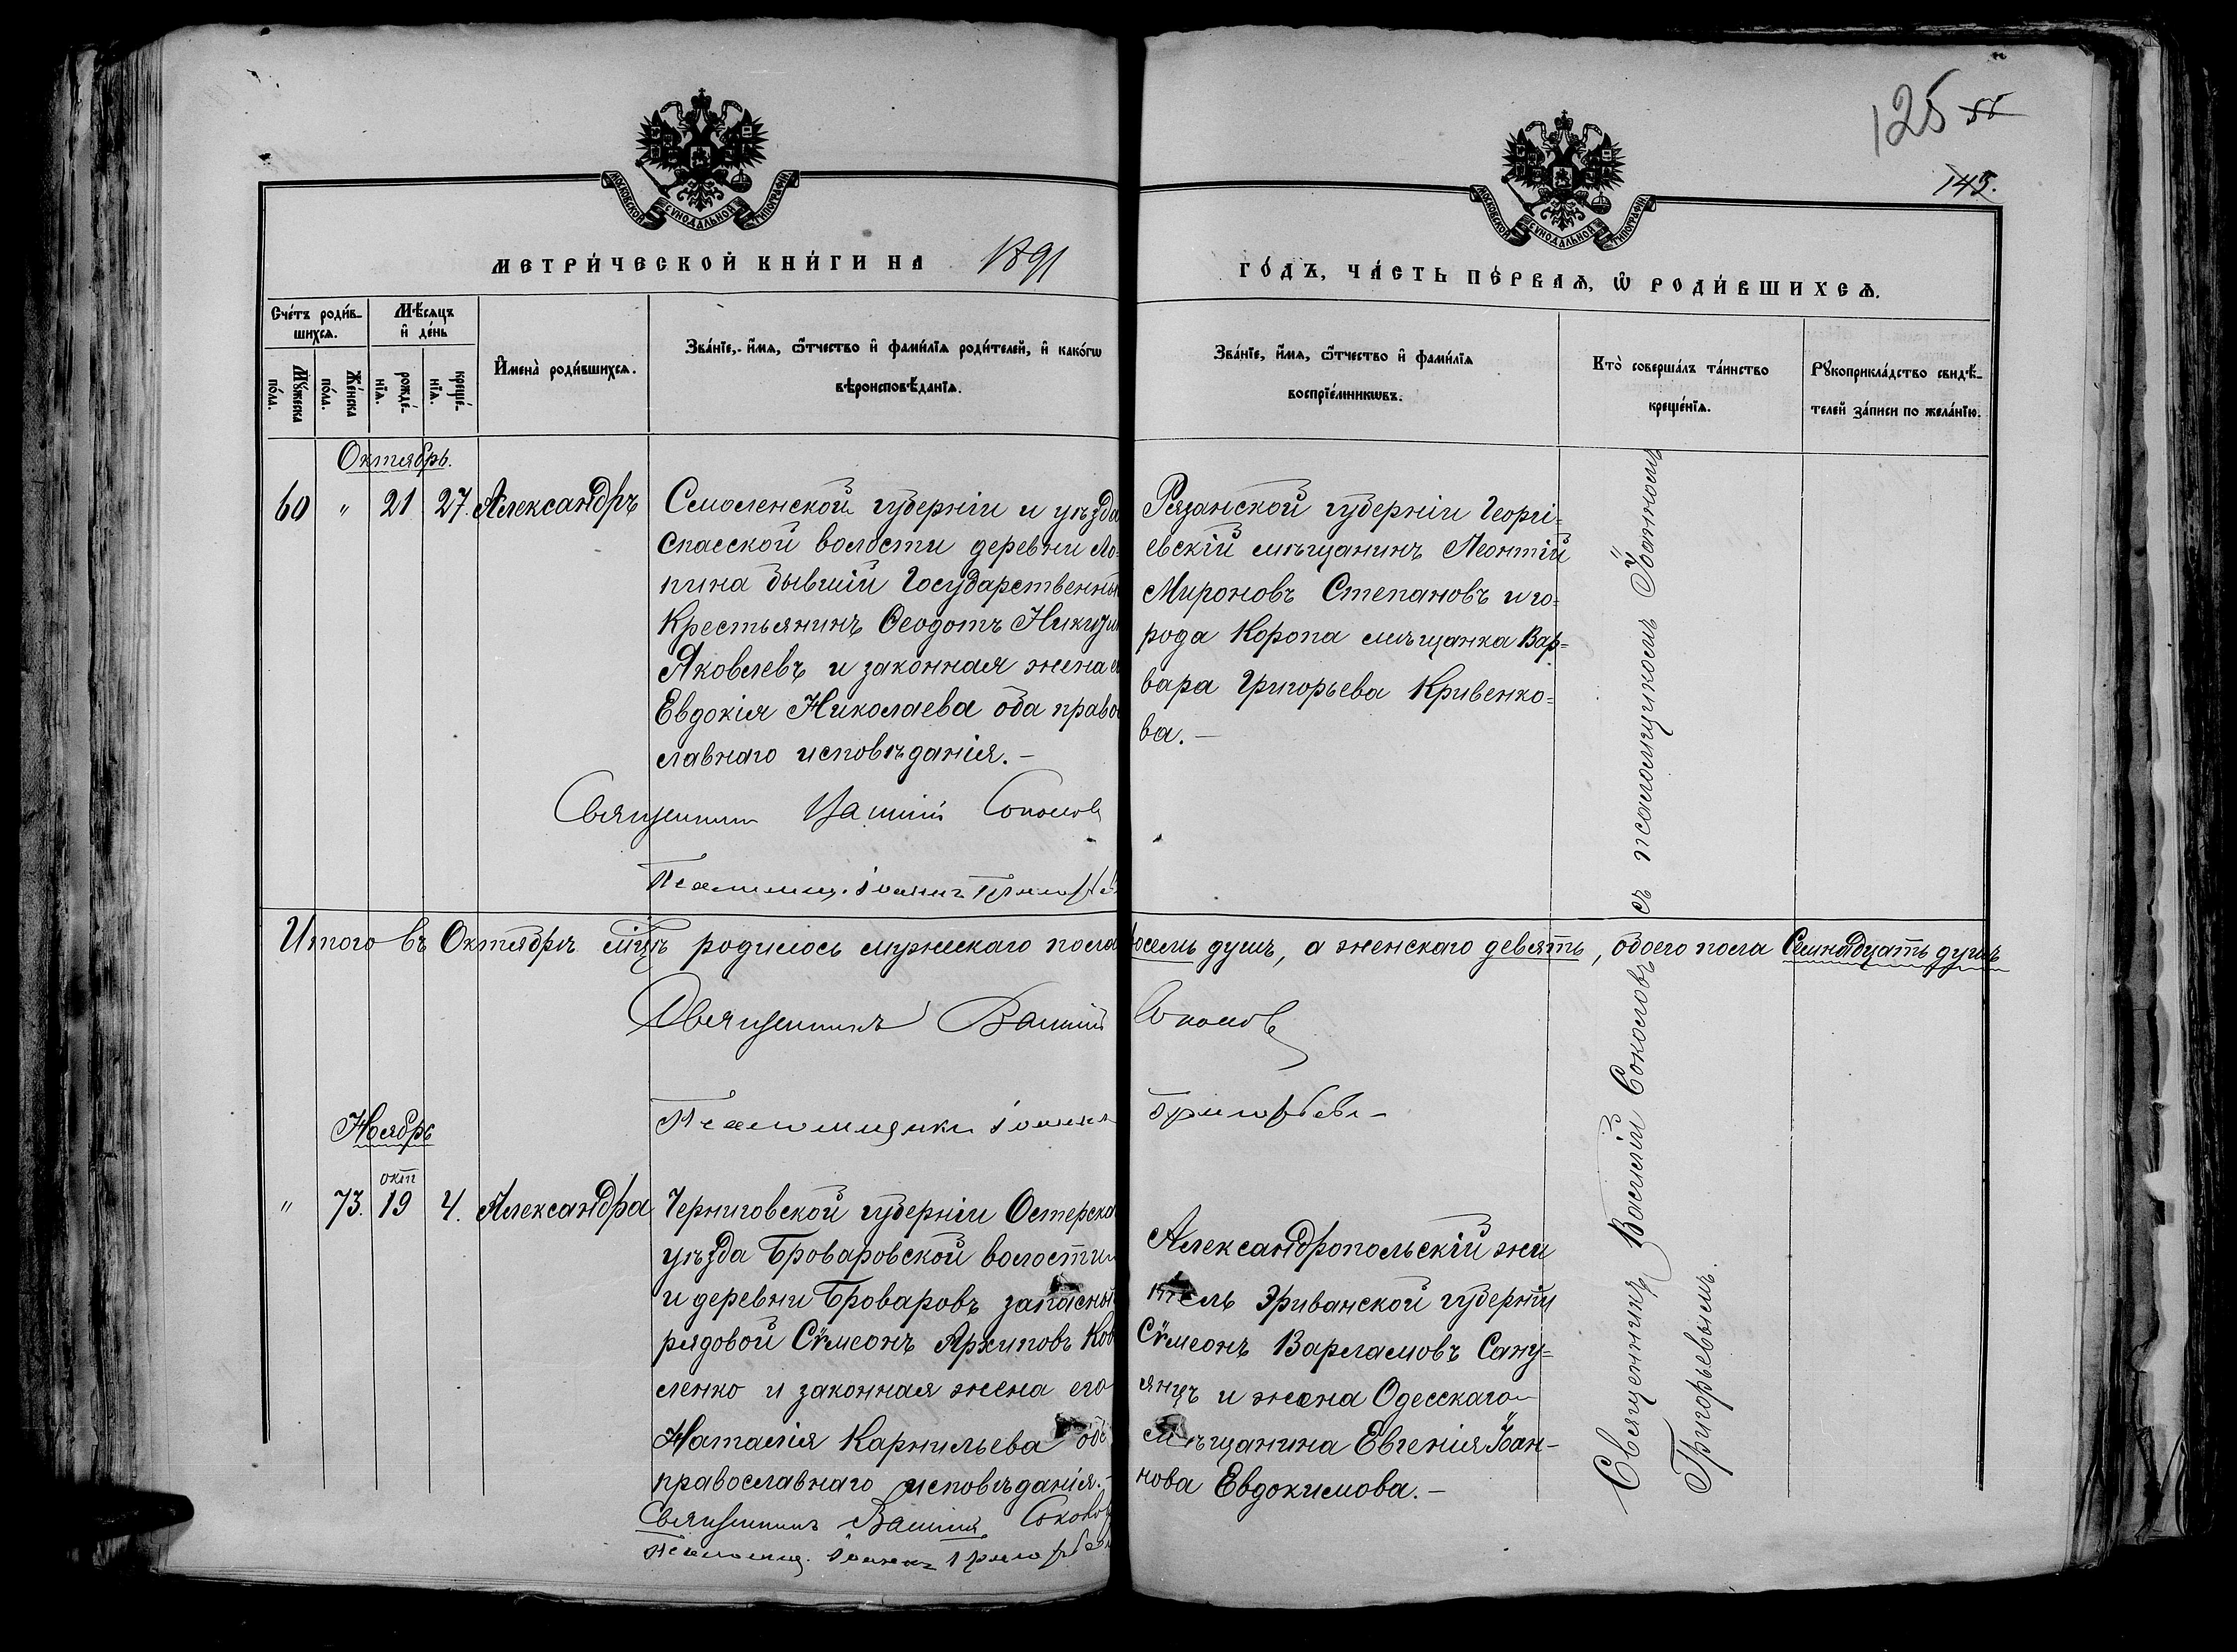 125 55
145.
МОСКОВСКОЙ СѴНОДАЛЬНОЙ ТИПОГРАФІИ
МОСКОВСКОЙ СѴНОДАЛЬНОЙ ТИПОГРАФІИ
МЕТРИ́ЧЕСКОЙ КНИ́ГИ НА 1891
ГО́ДЪ, ЧА́СТЬ ПЕ́РВАѦ, Ѽ РОДИ́ВШИХСѦ.
Сче́тъ роди́в-
шихсѧ.
Мѣ́сѧцъ
и҆ де́нь
Мꙋ́жеска
по́ла.
Же́нска
по́ла.
рожде́-
нїѧ.
креще́-
нїѧ.
И҆мена̀ роди́вшихсѧ.
Зва́нїе, и҆́мѧ, ѻ҆́тчество и҆ фами́лїѧ роди́телей, и҆ како́гѡ
вѣроисповѣ́данїѧ.
Зва́нїе, и҆́мѧ, ѻ҆́тчество и҆ фами́лїѧ
воспрїе́мникѡвъ.
Кто̀ соверша́лъ та́инство
креще́нїѧ.
Рꙋкоприкла́дство свидѣ́-
телей за́писи по жела́нїю.
Октябрь.
60 " 21 27. Александръ
Смоленской губерніи и уѣзда
Спасской волости деревни Ло-
пина бывшій Государственный
Крестьянинъ Ѳеодотъ
Яковлевъ и законная жена
Евдокія Николаева оба право
славнаго исповѣданія.—
Священникъ Василій Соколовъ
Псаломщ. Іоаннъ Григорьевъ
Рязанской губерніи Георгі-
евскій мѣщанинъ Леонтій
Мироновъ Степановъ и го-
рода Коропа мѣщанка Вар-
вара Григорьева Кривенко-
ва.—
Итого въ Октябрѣ мцѣ родилось мужескаго пола восемь душъ, а женскаго девять, обоего пола Семнадцать душъ
Священникъ Василій Соколовъ
Псаломщикъ Іоаннъ Григорьевъ
Ноябрь
окт
" 73. 19 4. Александра
Черниговской губерніи Остерска
уѣзда Броваровской волости
и деревни Броваровъ запасный
рядовой Сѵмеонъ Архиповъ Ков
ленко и законная жена его
Наталія Карнильева оба
православнаго исповѣданія.—
Священникъ Василій Соколовъ
Псаломщ. Іоаннъ Григорьевъ
Александропольскій жи
тель Эриванской губерніи
Сѵмеонъ Варламовъ Сану-
янцъ и жена Одесскаго
мѣщанина Евгенія Іоан-
нова Евдокимова.—
Священникъ Василій Соколовъ съ псаломщикомъ Іоанномъ
Григорьевымъ.